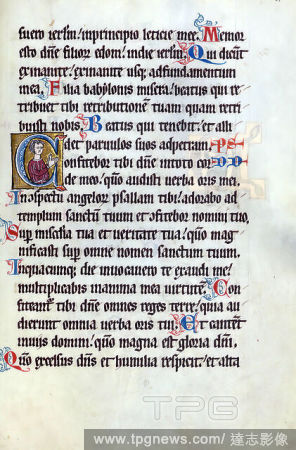 fuero ierlm! in principio leticie mee. Memor
esto dñe filioꝝ edom! in die ierlm. Qui dicūt
exinanite! exinanite usq; ad fundamentum
in ea. Filia babylonis misera! beatus qui re
tribuet tibi retributionē tuam quam retri
buisti nobis. Beatus qui tenebit! et alli
det paruulos suos ad petram. PS
Confitebor tibi dñe in toto cor DD
de meo! qm̄ audisti uerba oris mei.
In ꝯspectu angelor psallam tibi! adorabo ad
templum sanctū tuum et ꝯfitebor nomini tuo,
Sup misc̄dia tua et ueritate tua! qm̄ mag
nificasti sup omne nomen sanctum tuum.
In quacumq; die inuocauero te exaudi me!
multiplicabis in anima mea uirtutē. Con
fiteant̄ tibi dñe omnes reges terre! quia au
dierunt omnia uerba oris tui. Et cantent
in uiis domini! qm̄ magna est gloria dñi,
Qm̄ excelsus dñs et humilia respicit! et alta
TPG
www.tpgnews.com / 達志影像